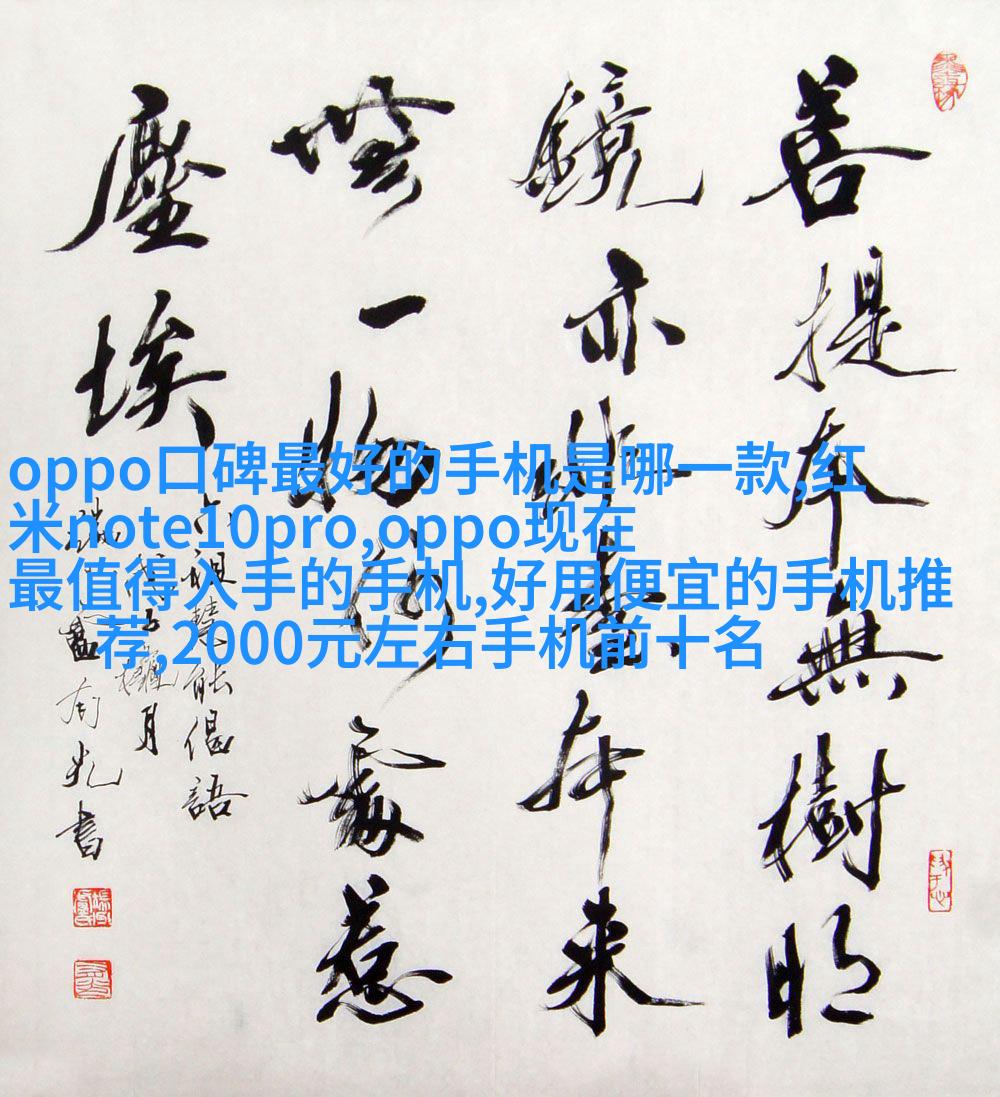 菩提本無樹明
鏡亦非臺本来
無一物何處惹
塵埃
六祖慧能偈語
月
書
oppo口碑最好的手机是哪一款,红
米note10pro,oppo现在
最值得入手的手机,好用便宜的手机推
荐,2000元左右手机前十名